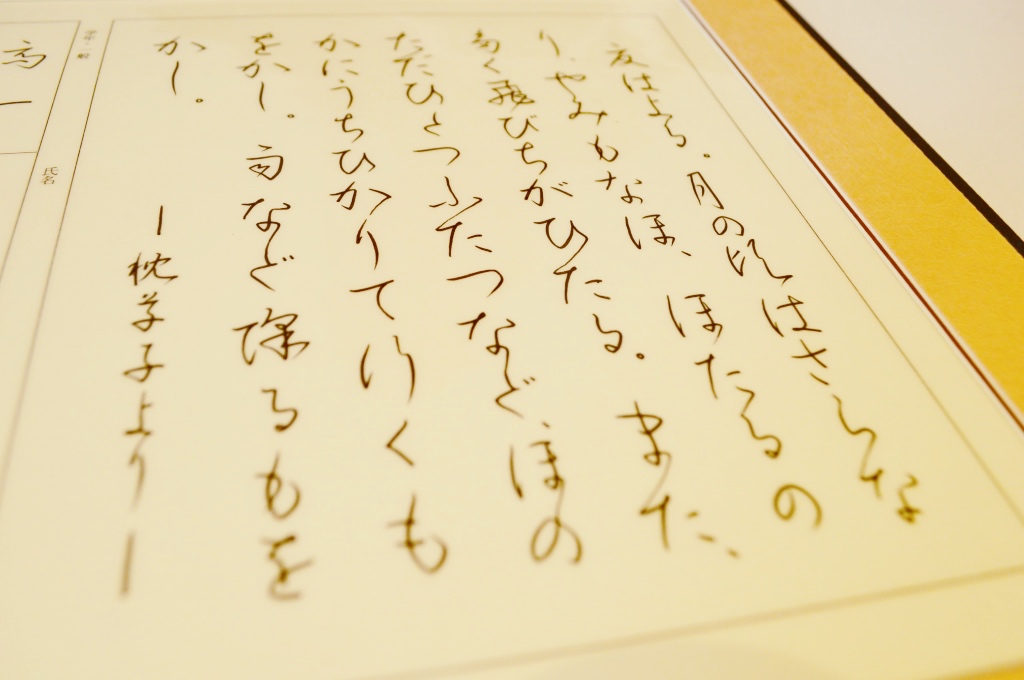 夏はよる。月の頃はさらな
り、やみもなほ、ほたるの
多く飛びちがひたる。また、
ただひとつふたつなど、ほの
かにうちひかりて行くも
をかし。雨など降るもを
かし。
ー枕草子よりー
氏名
高一